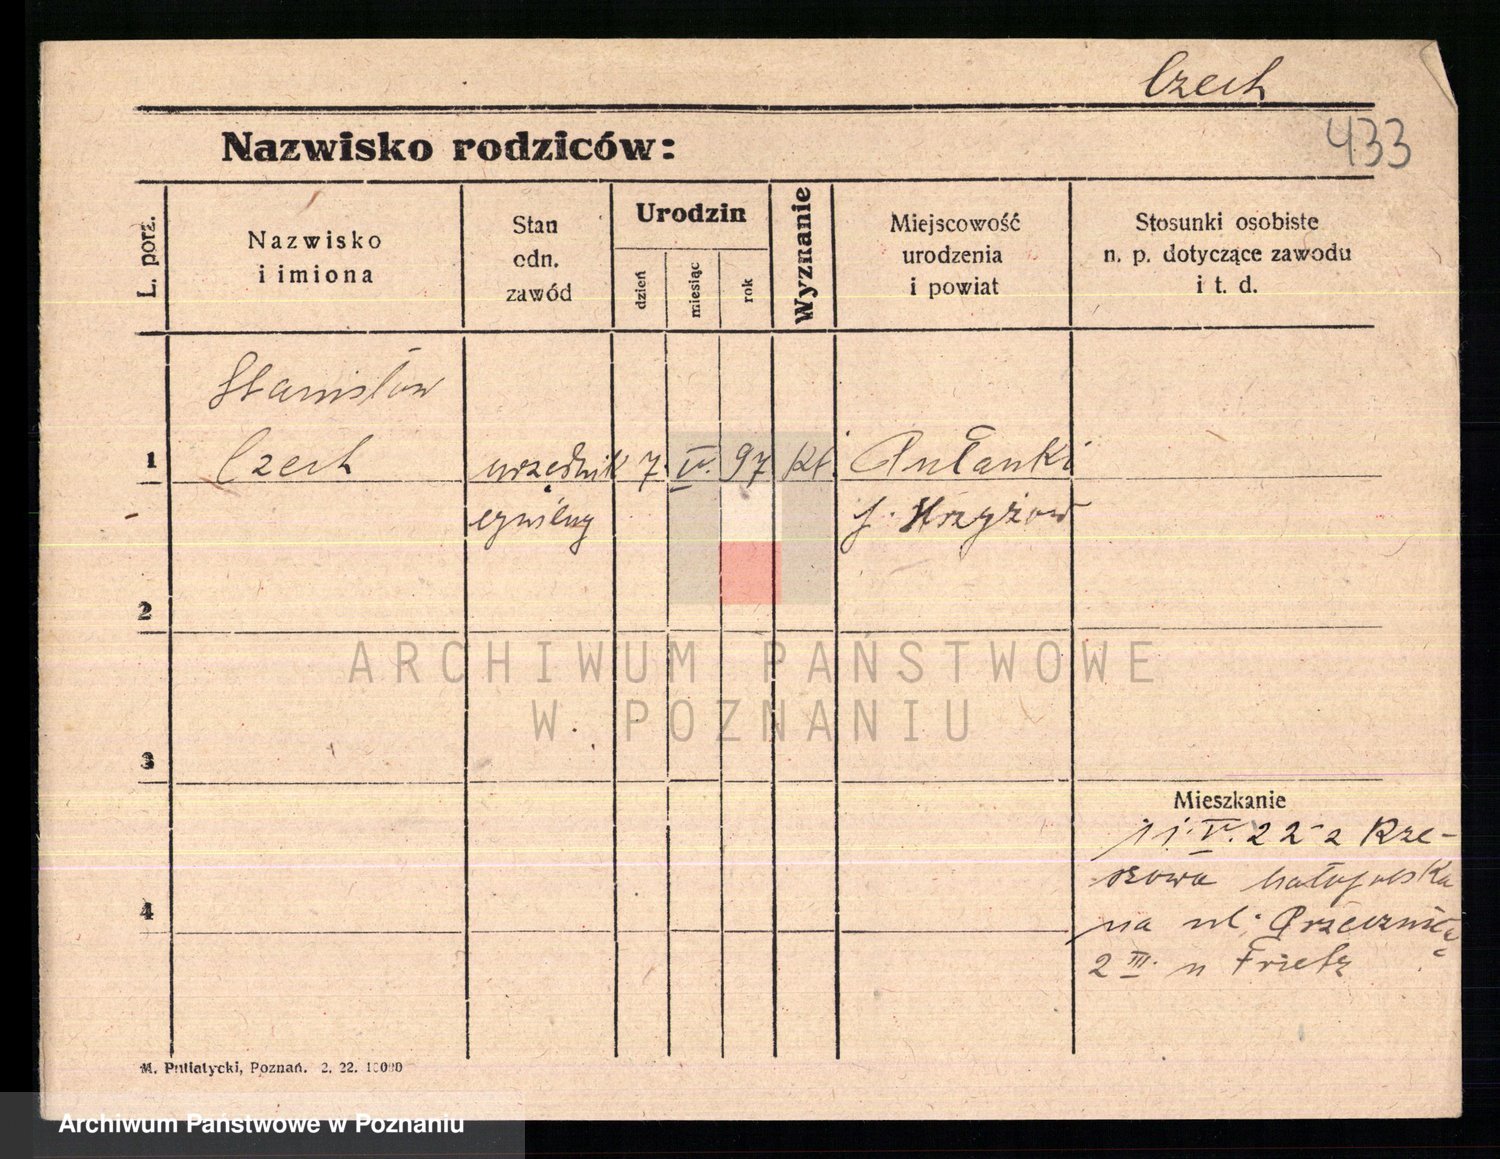 Czech
433
Nazwisko rodziców:
L. porz.
Nazwisko
i imiona
Stan
odn.
zawód
Urodzin
dzień
miesiąc
rok
Wyznanie
Miejscowość
urodzenia
i powiat
Stosunki osobiste
n. p. dotyczące zawodu
i t. d.
Stanisław
1 Czech urzędnik 7. IV. 97 kt.
cywilny
2
3
4
Mieszkanie
11. V. 22 z Rze-
szowa Małopolska
na ul.
2 III. u
M. Putiatycki, Poznań. 2. 22. 10000
ARCHIWUM PAŃSTWOWE
W POZNANIU
Archiwum Państwowe w Poznaniu